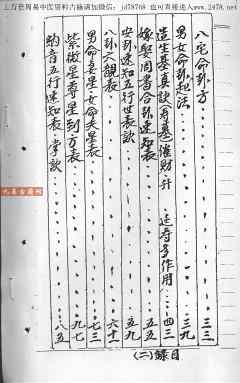 上万套周易中医资料古籍请加微信：jd78768 也可直接进入www.2478.net
八宅命卦方……三三
男女命卦起法……三九
造生基真訣寿墓催財升 延寿多作用……四三
嫁娶周書合卦速知表……五五
安卦速知五行世表歌……五九
八卦六親表……六十
男命妻星女命夫星表……七三
紫微星尊星到方表……九七
納音五行速知表 掌訣……八五
(二)錄目